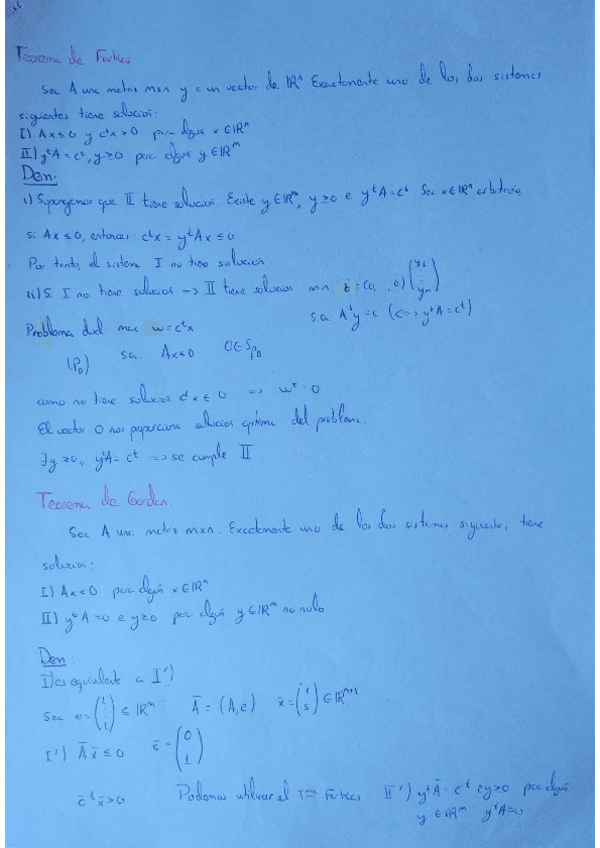 Teorema de Farkas
Sea A una matriz mxn y c un vector de ℝⁿ Exactamente uno de los dos sistemas
siguientes tiene solución:
I) Ax≤0 y cᵗx>0 para algún x∈ℝⁿ
II) yᵗA=cᵗ, y≥0 para algún y∈ℝᵐ
Dem.
i) Supongamos que II tiene solución. Existe y∈ℝᵐ, y≥0 e yᵗA=cᵗ Sea x∈ℝⁿ arbitrario
si Ax≤0, entonces cᵗx=yᵗAx≤0
Por tanto, el sistema I no tiene solución.
ii) Si I no tiene solución → II tiene solución min z=(0,..,0)(y1 : ym)
s.a. Aᵗy=c (⇔ yᵗA=cᵗ)
Problema dual max w=cᵗx
(P_D) s.a. Ax≤0 0∈S_PD
como no tiene solución cᵗx≤0 ⇒ w*=0
El vector 0 nos proporciona solución óptima del problema.
∃y≥0, yᵗA=cᵗ ⇒ se cumple II
Teorema de Gordan.
Sea A una matriz mxn. Exactamente uno de los dos sistemas siguientes, tiene
solución:
I) Ax<0 para algún x∈ℝⁿ
II) yᵗA=0 e y≥0 para algún y∈ℝᵐ no nulo
Dem
I) es equivalente a I')
Sea e=(1 : 1)∈ℝᵐ Ā=(A,e) x̄=(x s)∈ℝⁿ⁺¹
I') Āx̄≤0 c̄=(0 : 1)
c̄ᵗx̄>0 Podemos utilizar el Farkas II') yᵗĀ=c̄ᵗ e y≥0 para algún
y∈ℝᵐ yᵗA=0